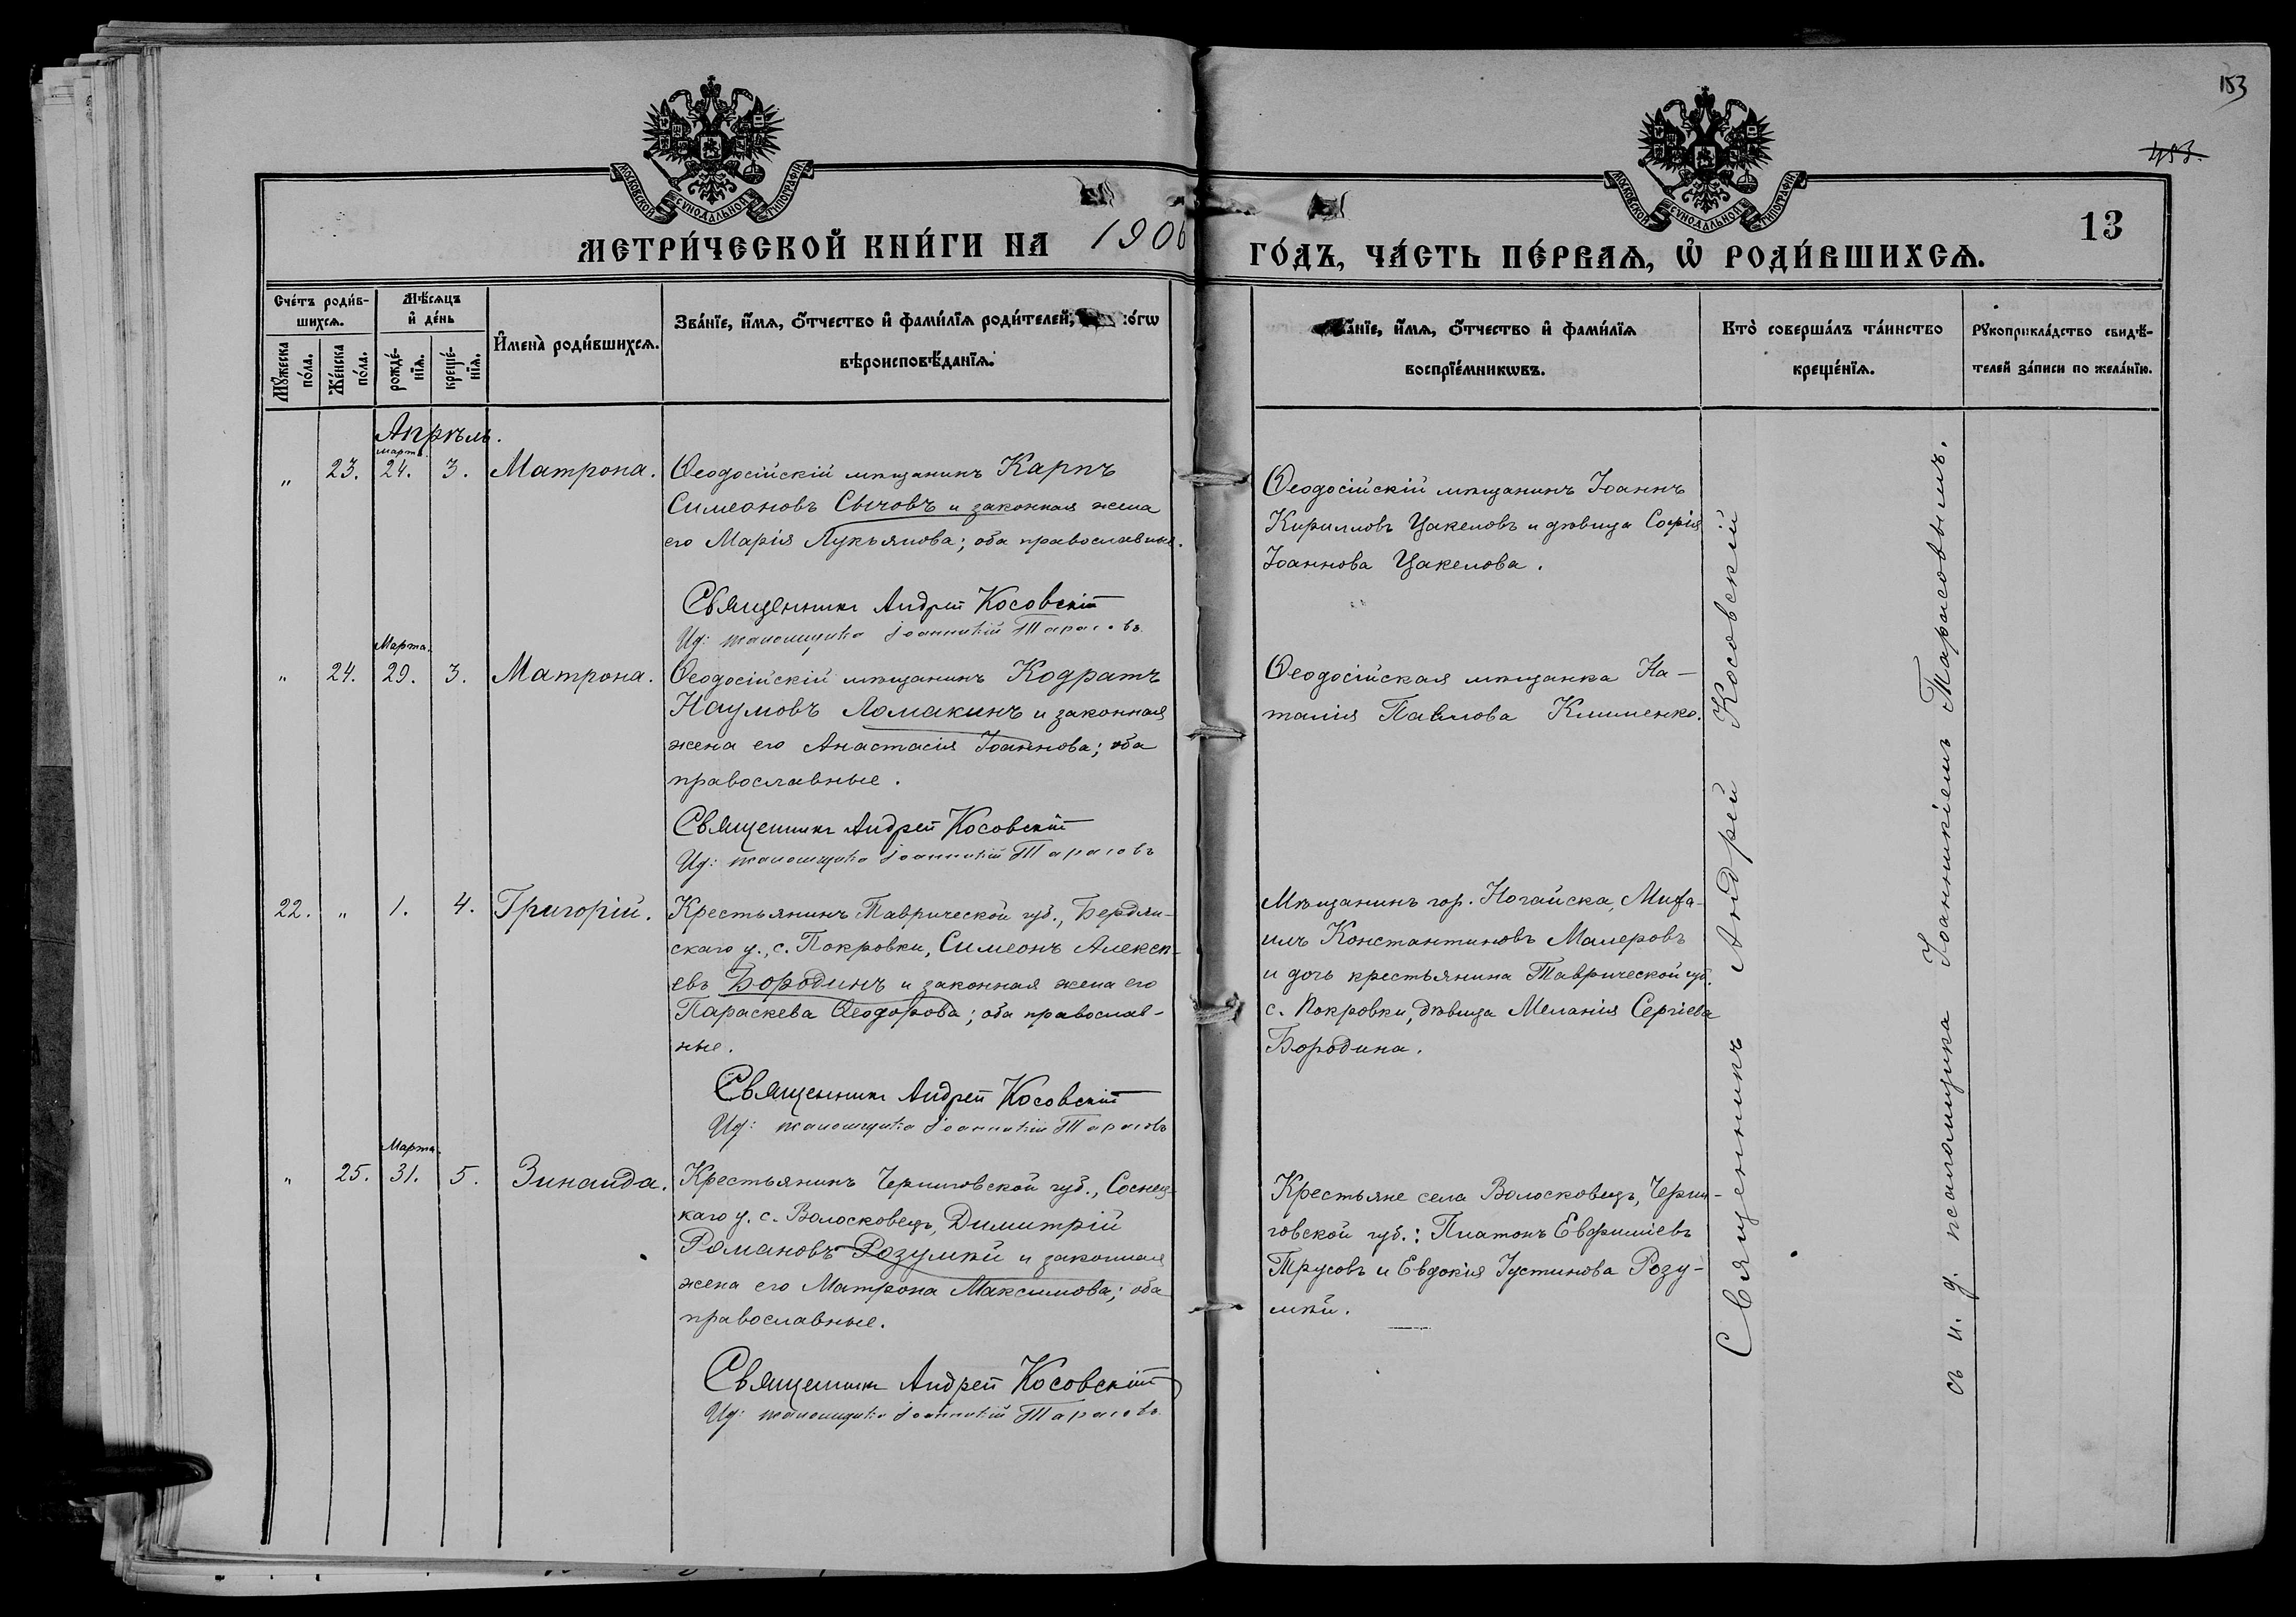 153
453.
13
МОСКОВСКОЙ СѴНОДАЛЬНОЙ ТИПОГРАФІИ
МОСКОВСКОЙ СѴНОДАЛЬНОЙ ТИПОГРАФІИ
МЕТРИ́ЧЕСКОЙ КНИ́ГИ НА 1906
ГО́ДЪ, ЧА́СТЬ ПЕ́РВАѦ, Ѡ҆ РОДИ́ВШИХСѦ.
Сче́тъ роди́в-
шихсѧ.
Мꙋ́жеска по́ла.
Же́нска по́ла.
Мѣ́сѧцъ
и҆ де́нь
рожде́-
нїѧ.
креще́-
нїѧ.
И҆мена̀ роди́вшихсѧ.
Зва́нїе, и҆́мѧ, ѻ҆́тчество и҆ фами́лїѧ роди́телей, о́гѡ
вѣроисповѣ́данїѧ.
а́нїе, и҆́мѧ, ѻ҆́тчество и҆ фами́лїѧ
воспрїе́мникѡвъ.
Кто̀ соверша́лъ та́инство
креще́нїѧ.
Рꙋкоприкла́дство свидѣ́-
телей за́писи по жела́нїю.
Апрѣль.
март.
„ 23. 24. 3. Матрона.
Ѳеодосійскій мѣщанинъ Карпъ
Симеоновъ Сычовъ и законная жена
его Марія Лукьянова; оба православные.
Священникъ Андрей Косовскій
Ид: псаломщика Іоанникій Тарасовъ
Ѳеодосійскій мѣщанинъ Іоаннъ
Кирилловъ Цакеловъ и дѣвица Софія
Іоаннова Цакелова.
Марта.
„ 24. 29. 3. Матрона.
Ѳеодосійскій мѣщанинъ Кодратъ
Наумовъ Ломакинъ и законная
жена его Анастасія Іоаннова; оба
православные.
Священникъ Андрей Косовскій
Ид: псаломщика Іоанникій Тарасовъ
Ѳеодосійская мѣщанка На-
талія Павлова Клименко.
22. „ 1. 4. Григорій.
Крестьянинъ Таврической губ., Бердян-
скаго у., с. Покровки, Симеонъ Алексѣ-
евъ Бородинъ и законная жена его
Параскева Ѳеодорова; оба православ-
ные.
Священникъ Андрей Косовскій
Ид: псаломщика Іоанникій Тарасовъ
Мѣщанинъ гор. Ногайска, Миха-
илъ Константиновъ Малеровъ
и дочь крестьянина Таврической губ.
с. Покровки, дѣвица Меланія Сергіева
Бородина.
Марта.
„ 25. 31. 5. Зинаида.
Крестьянинъ Черниговской губ., Сосниц-
каго у. с. Волосковецъ, Димитрій
Романовъ Розумѣй и законная
жена его Матрона Максимова; оба
православные.
Священникъ Андрей Косовскій
Ид: псаломщика Іоанникій Тарасовъ
Крестьяне села Волосковецъ, Черни-
говской губ.: Платонъ Евфиміевъ
Трусовъ и Евдокія Іустинова Розу-
мѣй.
Священникъ Андрей Косовскій
съ и. д. псаломщика Іоанникіемъ Тарасовымъ.